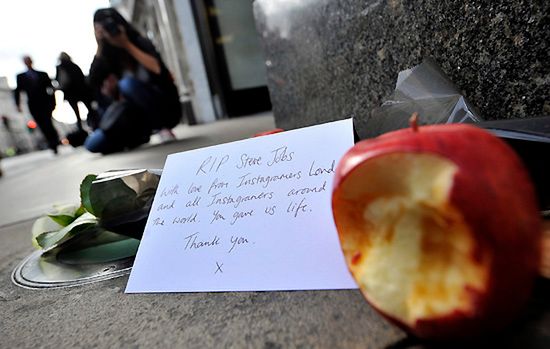 RIP Steve Jobs
with love from Instagramers Lond
and all Instagramers around
the world. You gave us life.
Thank you.
x